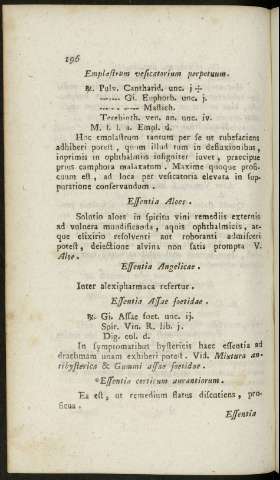 196
Emplastrum vesicatorium perpetuum.
℞. Pulv. Cantharid. unc. j ÷
...... Gi. Euphorb. unc. j.
...... ...... Mastich.
Terebinth. ven. an. unc. iv.
M. f. l. a. Empl. d.
Hoc emplastrum tantum per se ut rubefaciens
adhiberi potest, quum illud tum in defluxionibus,
inprimis in ophthalmiis insigniter iuvet, praecipue
prius camphora malaxatum. Maxime quoque profi-
cuum est, ad loca per vesicatoria elevata in sup-
puratione conservandum.
Essentia Aloes.
Solutio aloes in spiritu vini remediis externis
ad vulnera mundificanda, aquis ophthalmicis, at-
que elixirio resolventi aut roboranti admisceri
potest, deiectione alvina non satis prompta V.
Aloe.
Essentia Angelicae.
Inter alexipharmaca refertur.
Essentia Assae foetidae.
℞. Gi. Assae foet. unc. ij.
Spir. Vin. R. lib. j.
Dig. col. d.
In symptomatibus hystericis haec essentia ad
drachmam unam exhiberi potest. Vid. Mixtura an-
tihysterica & Gummi assae foetidae.
*Essentia corticum aurantiorum.
Ea est, ut remedium flatus discutiens, pro-
ficua.
Essentia